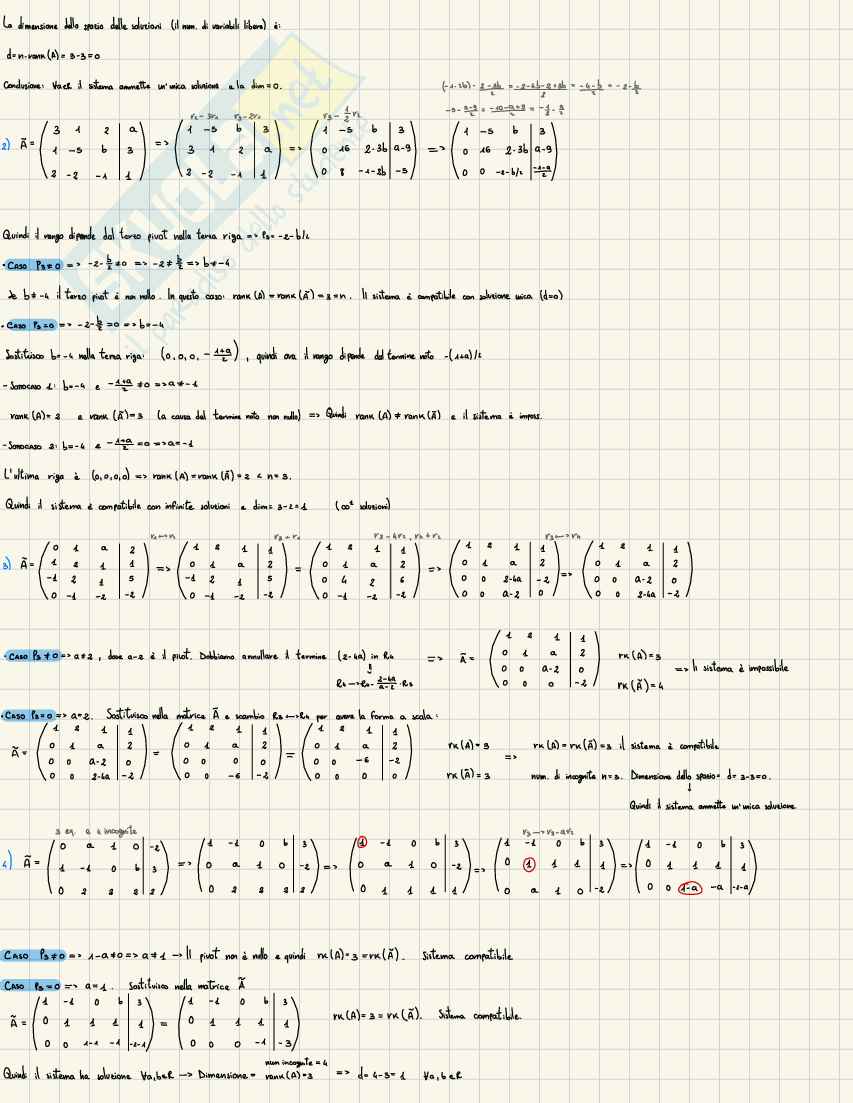 La dimensione dello spazio delle soluzioni (il num. di variabili libere) è:
d=n-rank(A)= 3-3=0
Conclusione: ∀a∈R il sistema ammette un'unica soluzione e la dim=0.
(-1-2b) - (2-3b)/2 = (-2-4b-2+3b)/2 = (-4-b)/2 = -2-b/2
-5 - (a-9)/2 = (-10-a+9)/2 = -1/2 - a/2
r₂-3r₁ r₃-2r₁ r₃-1/2 r₂
2) Ã = (3 1 2 | a; 1 -5 b | 3; 2 -2 -1 | 1) => (1 -5 b | 3; 3 1 2 | a; 2 -2 -1 | 1) => (1 -5 b | 3; 0 16 2-3b | a-9; 0 8 -1-2b | -5) => (1 -5 b | 3; 0 16 2-3b | a-9; 0 0 -2-b/2 | (-1-a)/2)
Quindi il rango dipende dal terzo pivot nella terza riga => P₃= -2-b/2
• CASO P₃≠0 => -2-b/2≠0 => -2≠b/2 => b≠-4
Se b≠-4 il terzo pivot è non nullo. In questo caso: rank(A)=rank(Ã)=3=n. Il sistema è compatibile con soluzione unica (d=0)
• CASO P₃=0 => -2-b/2=0 => b=-4
Sostituisco b=-4 nella terza riga: (0,0,0, -(1+a)/2), quindi ora il rango dipende dal termine noto -(1+a)/2
- SOTTOCASO 1: b=-4 e -(1+a)/2 ≠0 => a≠-1
rank(A)=2 e rank(Ã)=3 (a causa del termine noto non nullo) => Quindi rank(A)≠rank(Ã) e il sistema è imposs.
- SOTTOCASO 2: b=-4 e -(1+a)/2 =0 => a=-1
L'ultima riga è (0,0,0,0) => rank(A)=rank(Ã)=2 < n=3.
Quindi il sistema è compatibile con infinite soluzioni e dim=3-2=1 (∞¹ soluzioni)
r₃+r₁ r₃-4r₂, r₄+r₂ r₃<->r₄
3) Ã = (0 1 a | 2; 1 2 1 | 1; -1 2 1 | 5; 0 -1 -2 | -2) => (1 2 1 | 1; 0 1 a | 2; -1 2 1 | 5; 0 -1 -2 | -2) = (1 2 1 | 1; 0 1 a | 2; 0 4 2 | 6; 0 -1 -2 | -2) => (1 2 1 | 1; 0 1 a | 2; 0 0 2-4a | -2; 0 0 a-2 | 0) => (1 2 1 | 1; 0 1 a | 2; 0 0 a-2 | 0; 0 0 2-4a | -2)
• CASO P₃≠0 => a≠2, dove a-2 è il pivot. Dobbiamo annullare il termine (2-4a) in R₄ => Ã = (1 2 1 | 1; 0 1 a | 2; 0 0 a-2 | 0; 0 0 0 | -2) rk(A)=3 rk(Ã)=4 => Il sistema è impossibile
⇓
R₄->R₄- (2-4a)/(a-2) ·R₃
• CASO P₃=0 => a=2. Sostituisco nella matrice Ã e scambio R₃<->R₄ per avere la forma a scala:
Ã = (1 2 1 | 1; 0 1 a | 2; 0 0 a-2 | 0; 0 0 2-4a | -2) = (1 2 1 | 1; 0 1 a | 2; 0 0 0 | 0; 0 0 -6 | -2) = (1 2 1 | 1; 0 1 a | 2; 0 0 -6 | -2; 0 0 0 | 0)
rk(A)=3 => rk(A)=rk(Ã)=3 il sistema è compatibile
rk(Ã)=3 num. di incognite n=3. Dimensione dello spazio= d= 3-3=0.
↓
Quindi il sistema ammette un'unica soluzione
3 eq. e 4 incognite r₃->r₃-ar₂
4) Ã = (0 a 1 0 | -2; 1 -1 0 b | 3; 0 2 2 2 | 2) => (1 -1 0 b | 3; 0 a 1 0 | -2; 0 2 2 2 | 2) => (1 -1 0 b | 3; 0 a 1 0 | -2; 0 1 1 1 | 1) => (1 -1 0 b | 3; 0 1 1 1 | 1; 0 a 1 0 | -2) => (1 -1 0 b | 3; 0 1 1 1 | 1; 0 0 1-a -a | -2-a)
CASO P₃≠0 => 1-a≠0 => a≠1 -> Il pivot non è nullo e quindi rk(A)=3=rk(Ã). Sistema compatibile
CASO P₃=0 => a=1. Sostituisco nella matrice Ã
Ã = (1 -1 0 b | 3; 0 1 1 1 | 1; 0 0 1-1 -1 | -2-1) = (1 -1 0 b | 3; 0 1 1 1 | 1; 0 0 0 -1 | -3) rk(A)=3=rk(Ã). Sistema compatibile.
num incognite = 4
Quindi il sistema ha soluzione ∀a,b∈R -> Dimensione= rank(A)=3 => d= 4-3= 1 ∀a,b∈R
SKUOLA.net
il paradiso dello studente